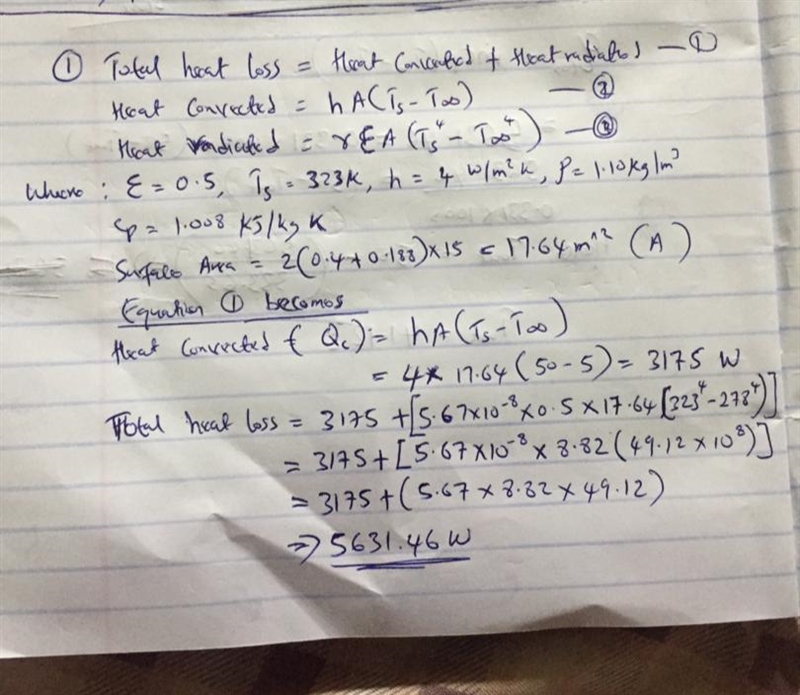 ① Total heat loss = Heat Convected + Heat radiated — ①
Heat Convected = hA(Ts - T∞) — ②
Heat radiated = γεA(Ts⁴ - T∞⁴) — ③
Where : ε = 0.5, Ts = 323K, h = 4 W/m²K, ρ = 1.10kg/m³
Cp = 1.008 KJ/kg K
Surface Area = 2(0.4+0.188)×15 = 17.64m^2 (A)
Equation ① becomes
Heat Convected ( Qc) = hA(Ts - T∞)
= 4× 17.64(50-5) = 3175 W
Total heat loss = 3175 +[5.67×10⁻⁸×0.5×17.64[323⁴-278⁴)]
= 3175+[5.67×10⁻⁸×8.82(49.12×10⁸)]
= 3175+(5.67×8.82×49.12)
⇒ 5631.46W